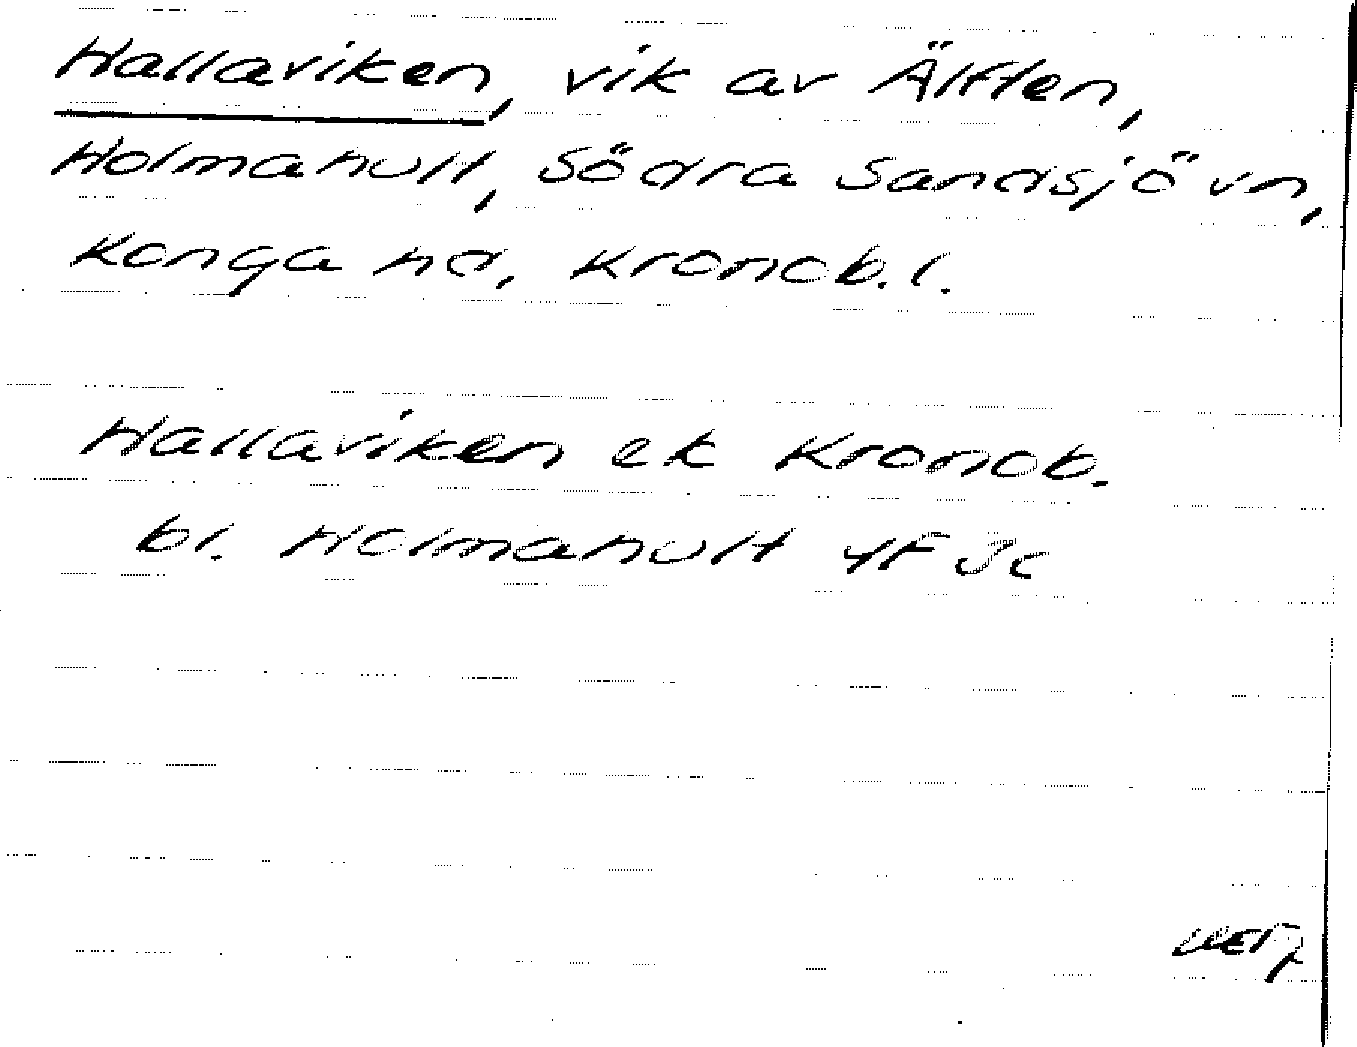 Hallaviken, vik av Älften,
Holmahult, Södra Sandsjö vn,
Konga hd, Kronob. l.
Hallaviken ek Kronob.
bl. Holmahult 4F Jc